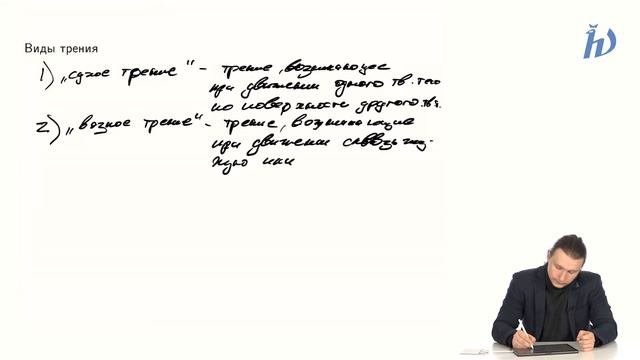 Виды трения
1) „сухое трение" – трение, возникающее
при движении одного тв. тела
по поверхности другого тв.т.
2) „вязкое трение" – трение, возникающие
при движении сквозь
или